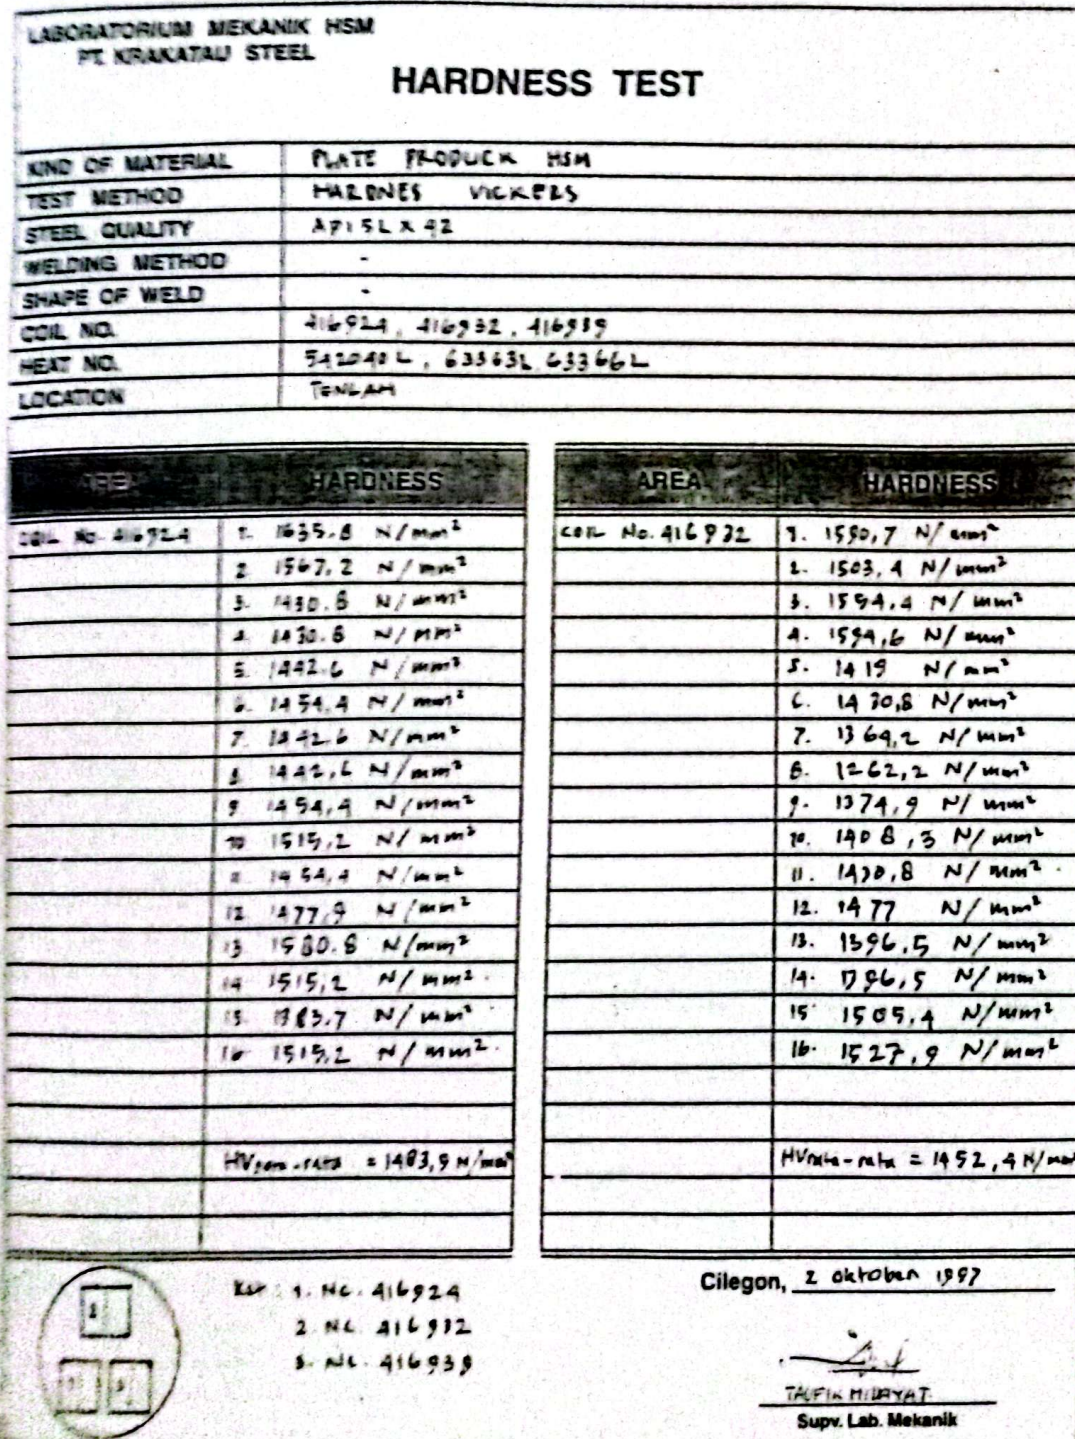 LABORATORIUM MEKANIK HSM
PT. KRAKATAU STEEL
HARDNESS TEST
KIND OF MATERIAL PLATE PRODUCK HSM
TEST METHOD HARDNES VICKERS
STEEL QUALITY API 5L X 42
WELDING METHOD -
SHAPE OF WELD -
COIL NO. 416924, 416932, 416939
HEAT NO. 542040L, 633631, 633662
LOCATION TENGAH
AREA HARDNESS
COIL No. 416924 1. 1635.8 N/mm²
2 1567,2 N/mm²
3. 1430.8 N/mm²
4. 1430.8 N/mm²
5. 1442.6 N/mm²
6. 1454,4 N/mm²
7. 1442.6 N/mm²
8 1442,6 N/mm²
9 1454,4 N/mm²
10 1515,2 N/mm²
11 1454,4 N/mm²
12 1477,9 N/mm²
13 N/mm²
14 1515,2 N/mm²
15. N/mm²
16 1515,2 N/mm²
HV rata-rata = 1483,9 N/mm²
AREA HARDNESS
COIL No. 416932 1. 1590,7 N/mm²
2. 1503,4 N/mm²
3. 1594,4 N/mm²
4. 1594,6 N/mm²
5. 1419 N/mm²
6. 1430,8 N/mm²
7. 1364,2 N/mm²
8. 1262,2 N/mm²
9. 1374,9 N/mm²
10. 1408,3 N/mm²
11. 1430,8 N/mm²
12. 1477 N/mm²
13. 1396,5 N/mm²
14. 1396,5 N/mm²
15 1505,4 N/mm²
16. 1527,9 N/mm²
HV rata-rata = 1452,4 N/mm²
Ket : 1. NC. 416924
2. NC. 416932
3. NC. 416939
Cilegon, 2 oktober 1997
TAUFIK HIDAYAT
Supv. Lab. Mekanik